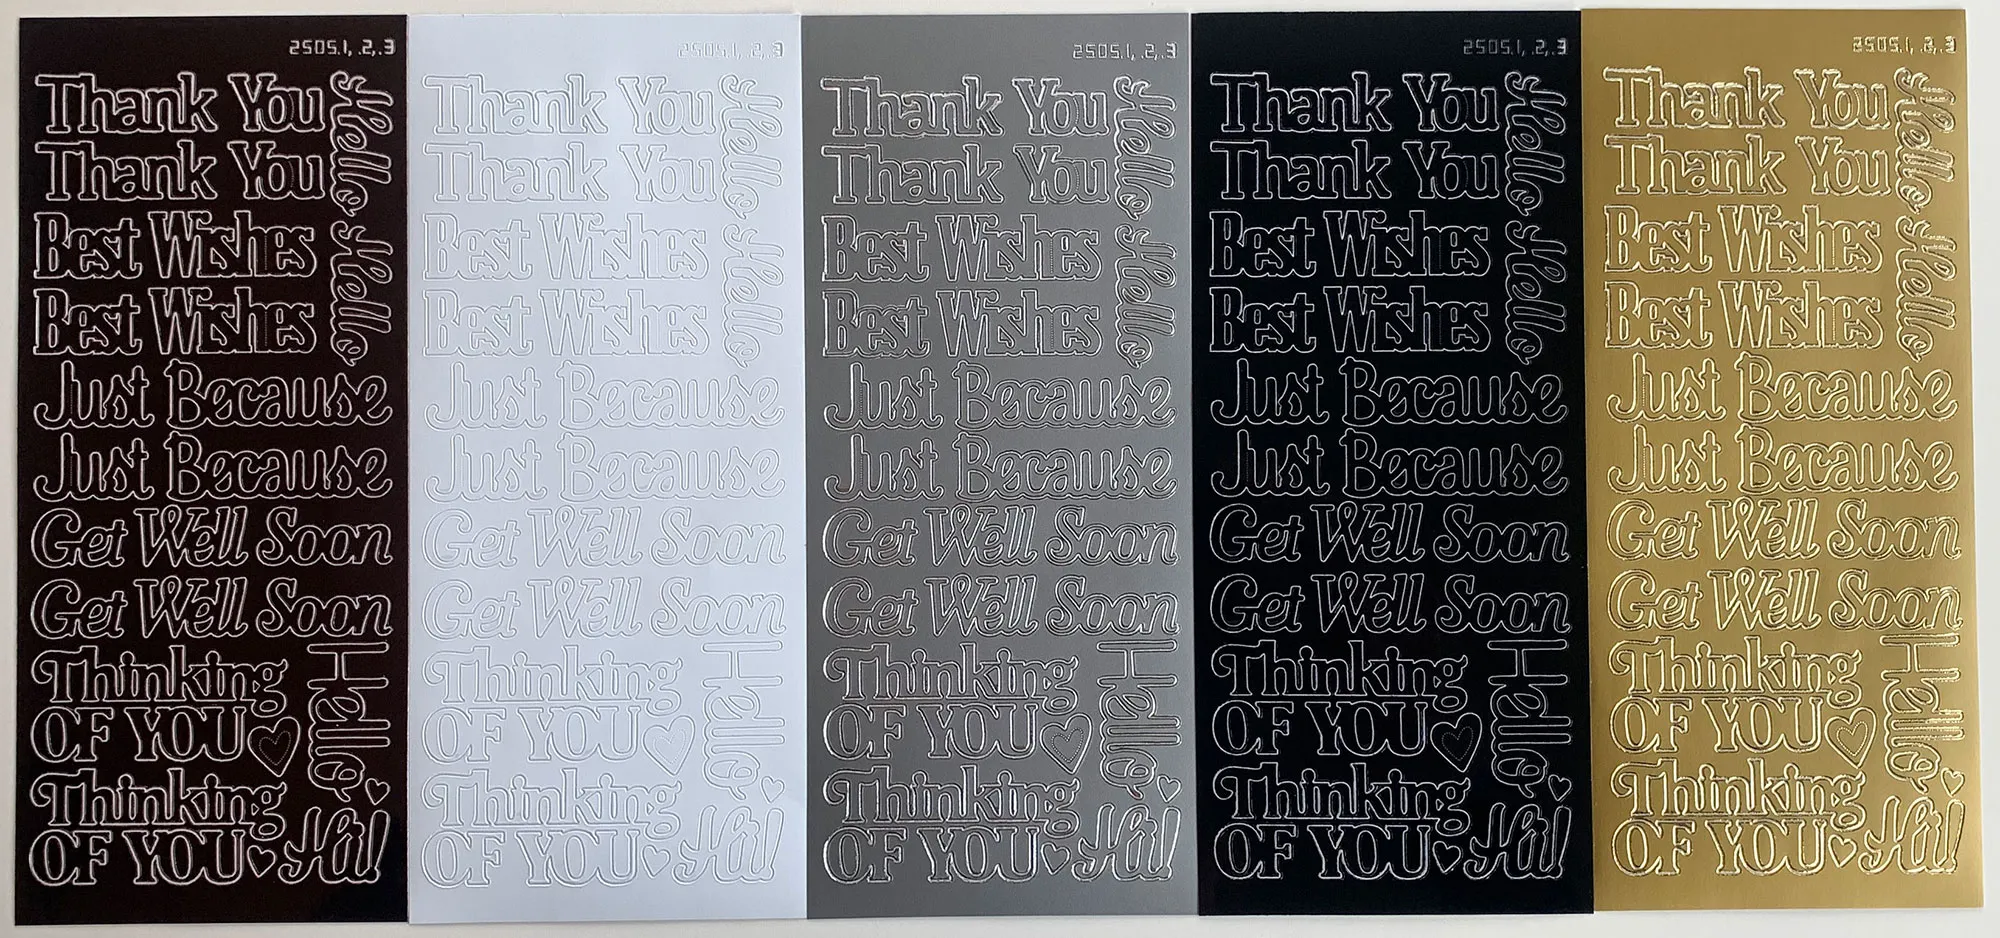 2505.1, .2, .3
Thank You
Thank You
Hello
Best Wishes
Best Wishes
Hello
Just Because
Just Because
Get Well Soon
Get Well Soon
Thinking
OF YOU
Hello
Thinking
OF YOU
Hi!
2505.1, .2, .3
Thank You
Thank You
Hello
Best Wishes
Best Wishes
Hello
Just Because
Just Because
Get Well Soon
Get Well Soon
Thinking
OF YOU
Hello
Thinking
OF YOU
Hi!
2505.1, .2, .3
Thank You
Thank You
Hello
Best Wishes
Best Wishes
Hello
Just Because
Just Because
Get Well Soon
Get Well Soon
Thinking
OF YOU
Hello
Thinking
OF YOU
Hi!
2505.1, .2, .3
Thank You
Thank You
Hello
Best Wishes
Best Wishes
Hello
Just Because
Just Because
Get Well Soon
Get Well Soon
Thinking
OF YOU
Hello
Thinking
OF YOU
Hi!
2505.1, .2, .3
Thank You
Thank You
Hello
Best Wishes
Best Wishes
Hello
Just Because
Just Because
Get Well Soon
Get Well Soon
Thinking
OF YOU
Hello
Thinking
OF YOU
Hi!